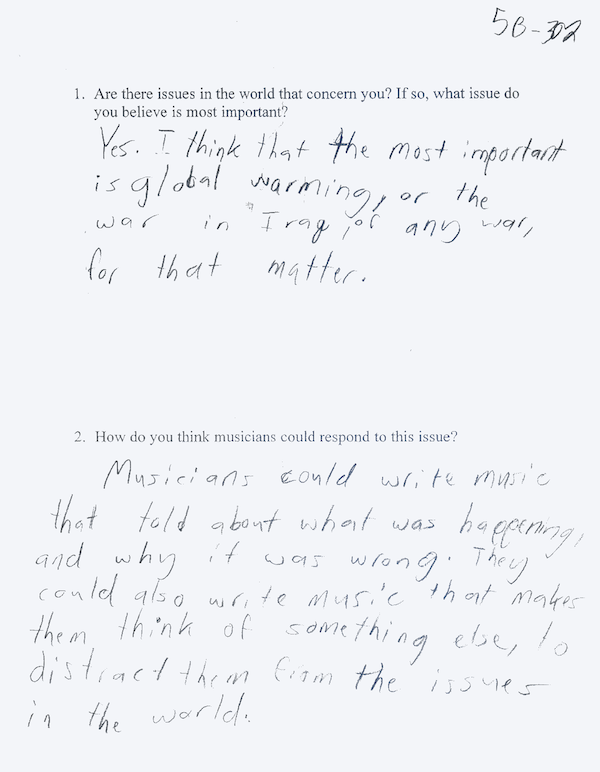 5B-302
1. Are there issues in the world that concern you? If so, what issue do
you believe is most important?
Yes. I think that the most important
is global warming, or the
war in Iraq, or any war,
for that matter.
2. How do you think musicians could respond to this issue?
Musicians could write music
that told about what was happening,
and why it was wrong. They
could also write music that makes
them think of something else, to
distract them from the issues
in the world.